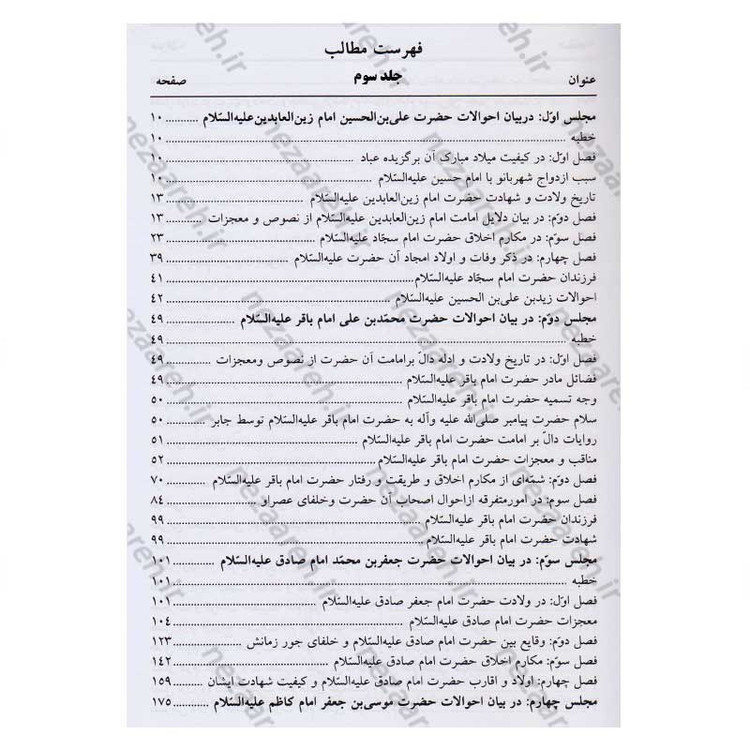 فهرست مطالب
جلد سوم
عنوان صفحه
مجلس اوّل: دربیان احوالات حضرت علی‌بن‌الحسین امام زین‌العابدین‌علیه‌السّلام ........... ۱۰
خطبه ........... ۱۰
فصل اوّل: در کیفیت میلاد مبارک آن برگزیده عباد ........... ۱۰
سبب ازدواج شهربانو با امام حسین علیه‌السّلام ........... ۱۰
تاریخ ولادت و شهادت حضرت امام زین‌العابدین علیه‌السّلام ........... ۱۳
فصل دوّم: در بیان دلایل امامت امام زین‌العابدین علیه‌السّلام از نصوص و معجزات ........... ۱۳
فصل سوّم: در مکارم اخلاق حضرت امام سجّاد علیه‌السّلام ........... ۲۳
فصل چهارم: در ذکر وفات و اولاد امجاد آن حضرت علیه‌السّلام ........... ۳۹
فرزندان حضرت امام سجّاد علیه‌السّلام ........... ۴۱
احوالات زیدبن علی‌بن الحسین علیه‌السّلام ........... ۴۲
مجلس دوّم: در بیان احوالات حضرت محمّدبن علی امام باقر علیه‌السّلام ........... ۴۹
خطبه ........... ۴۹
فصل اوّل: در تاریخ ولادت و ادله دالّ برامامت آن حضرت از نصوص ومعجزات ........... ۴۹
فضائل مادر حضرت امام باقر علیه‌السّلام ........... ۴۹
وجه تسمیه حضرت امام باقر علیه‌السّلام ........... ۵۰
سلام حضرت پیامبر صلی‌الله علیه وآله به حضرت امام باقر علیه‌السّلام توسط جابر ........... ۵۰
روایات دالّ بر امامت حضرت امام باقر علیه‌السّلام ........... ۵۱
مناقب و معجزات حضرت امام باقر علیه‌السّلام ........... ۵۲
فصل دوّم: شمّه‌ای از مکارم اخلاق و طریقت و رفتار حضرت امام باقر علیه‌السّلام ........... ۷۰
فصل سوم: در امورمتفرقه ازاحوال اصحاب آن حضرت وخلفای عصراو ........... ۸۴
فرزندان حضرت امام باقر علیه‌السّلام ........... ۹۹
شهادت حضرت امام باقر علیه‌السّلام ........... ۹۹
مجلس سوّم: در بیان احوالات حضرت جعفربن محمّد امام صادق علیه‌السّلام ........... ۱۰۱
خطبه ........... ۱۰۱
فصل اوّل: در ولادت حضرت امام جعفر صادق علیه‌السّلام ........... ۱۰۱
معجزات حضرت امام صادق علیه‌السّلام ........... ۱۰۴
فصل دوّم: وقایع بین حضرت امام صادق علیه‌السّلام و خلفای جور زمانش ........... ۱۲۳
فصل سوّم: مکارم اخلاق حضرت امام صادق علیه‌السّلام ........... ۱۴۲
فصل چهارم: اولاد و اقارب حضرت امام صادق علیه‌السّلام و کیفیت شهادت ایشان ........... ۱۵۹
مجلس چهارم: در بیان احوالات حضرت موسی‌بن جعفر امام کاظم علیه‌السّلام ........... ۱۷۵
nezaareh.ir